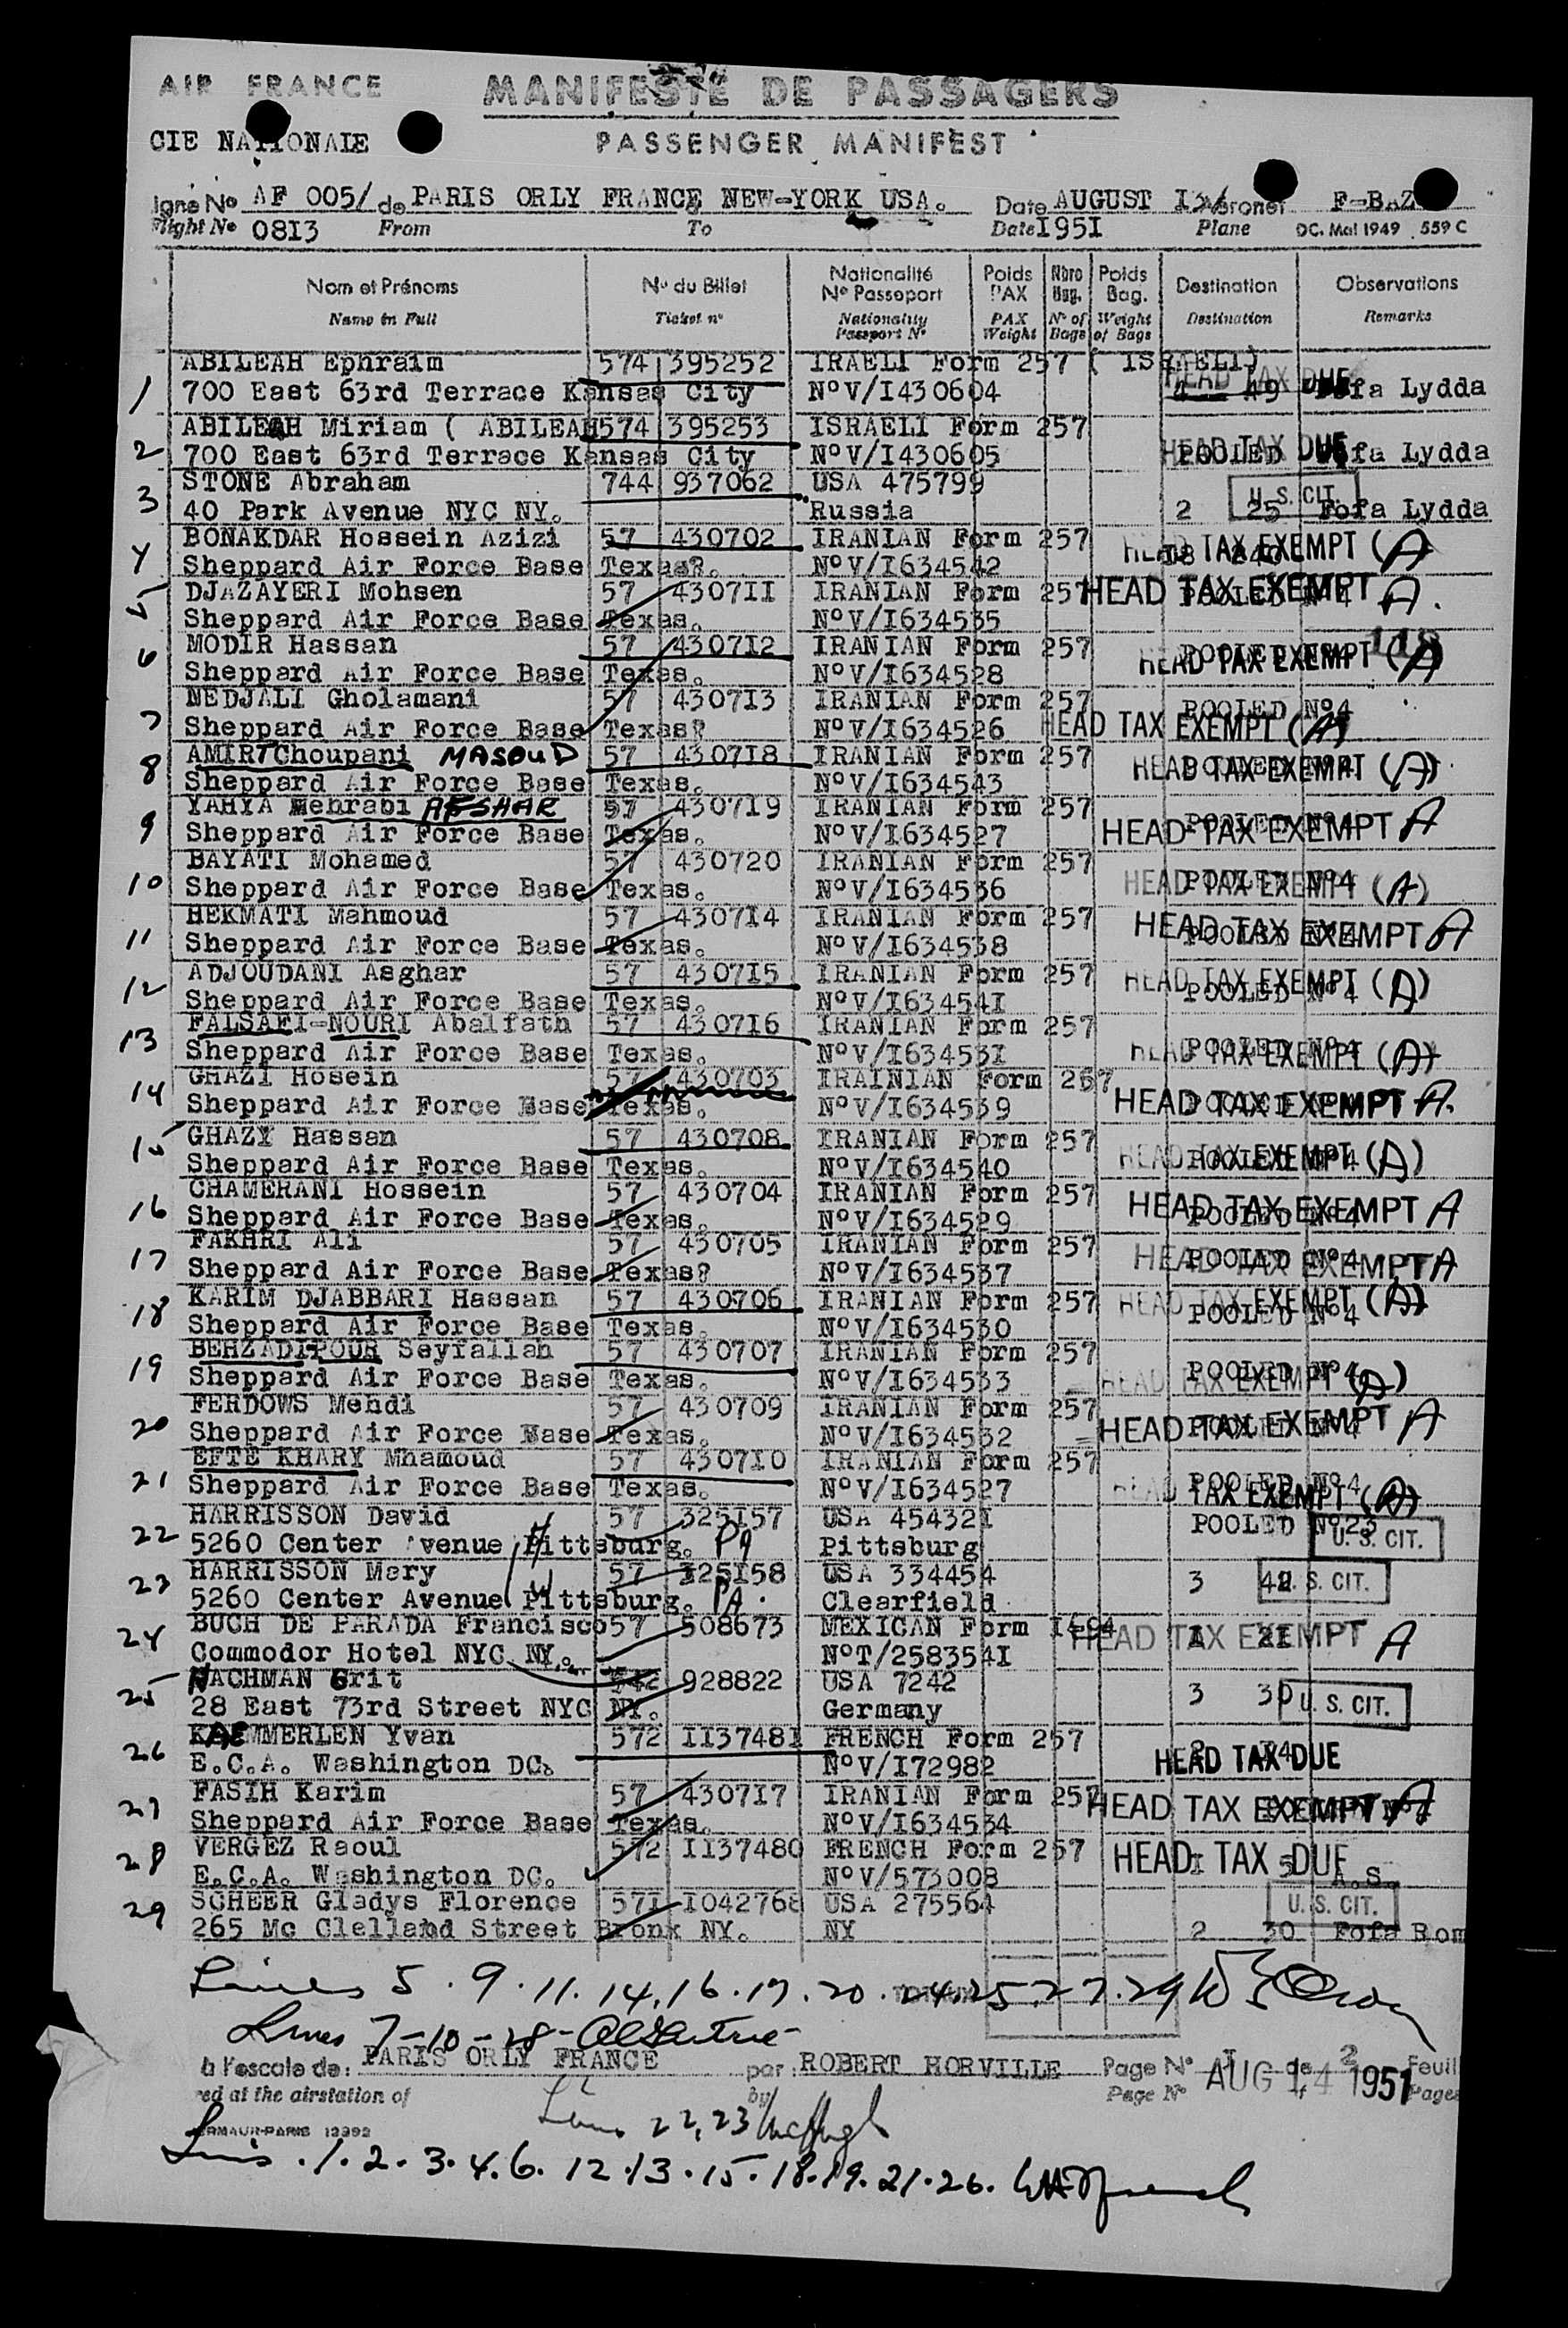 AIR FRANCE MANIFESTE DE PASSAGERS
CIE NATIONALE PASSENGER MANIFEST
igne No AF 005/ de PARIS ORLY FRANCE NEW-YORK USA. Date AUGUST I3/ F-BAZ
Flight No 08I3 From To Date I95I Plane OC. Mai 1949 559 C
Nom et Prénoms No du Billet Nationalité No Passeport Poids PAX Nbre Bag. Poids Bag. Destination Observations
Name in Full Ticket no Nationality Passport No PAX Weight No of Bags Weight of Bags Destination Remarks
ABILEAH Ephraim 574 395252 IRAELI Form 257 ( ISRAELI)
HEAD TAX DUE
1 700 East 63rd Terrace Kansas City NoV/I430604 4 49 Fofa Lydda
ABILEAH Miriam ( ABILEAH 574 395253 ISRAELI Form 257
HEAD TAX DUE
2 700 East 63rd Terrace Kansas City NoV/I430605 POOLED Fofa Lydda
STONE Abraham 744 937062 USA 475799
U.S. CIT.
3 40 Park Avenue NYC NY. Russia 2 25 Fofa Lydda
BONAKDAR Hossein Azizi 57 430702 IRANIAN Form 257
HEAD TAX EXEMPT (A)
4 Sheppard Air Force Base Texas. NoV/I634542 18
DJAZAYERI Mohsen 57 4307II IRANIAN Form 257 HEAD TAX EXEMPT A.
5 Sheppard Air Force Base Texas. NoV/I634535 POOLED No4
MODIR Hassan 57 4307I2 IRANIAN Form 257 POOLED No4
HEAD TAX EXEMPT (A)
6 Sheppard Air Force Base Texas. NoV/I634528
NEDJALI Gholamani 57 4307I3 IRANIAN Form 257 POOLED No4
7 Sheppard Air Force Base Texas? NoV/I634526 HEAD TAX EXEMPT (A)
AMIRTChoupani MASOUD 57 4307I8 IRANIAN Form 257 POOLED No4
HEAD TAX EXEMPT (A)
8 Sheppard Air Force Base Texas. NoV/I634543
YAHYA Mehrabi AFSHAR 57 4307I9 IRANIAN Form 257 POOLED No4
9 Sheppard Air Force Base Texas. NoV/I634527 HEAD TAX EXEMPT A
BAYATI Mohamed 57 430720 IRANIAN Form 257 POOLED No4
10 Sheppard Air Force Base Texas. NoV/I634536 HEAD TAX EXEMPT (A)
HEKMATI Mahmoud 57 4307I4 IRANIAN Form 257 HEAD TAX EXEMPT A
11 Sheppard Air Force Base Texas. NoV/I634538 POOLED No4
ADJOUDANI Asghar 57 4307I5 IRANIAN Form 257 HEAD TAX EXEMPT (A)
12 Sheppard Air Force Base Texas. NoV/I63454I POOLED No4
FALSAFI-NOURI Abalfath 57 4307I6 IRANIAN Form 257
13 Sheppard Air Force Base Texas. NoV/I63453I POOLED No4
HEAD TAX EXEMPT (A)
GHAZI Hosein 57 430703 IRAINIAN Form 257
14 Sheppard Air Force Base Texas. NoV/I634539 POOLED No4 HEAD TAX EXEMPT A.
GHAZY Hassan 57 430708 IRANIAN Form 257
15 Sheppard Air Force Base Texas. NoV/I634540 POOLED No4 HEAD TAX EXEMPT (A)
CHAMERANI Hossein 57 430704 IRANIAN Form 257
16 Sheppard Air Force Base Texas. NoV/I634529 POOLED No4 HEAD TAX EXEMPT A
FAKHRI Ali 57 430705 IRANIAN Form 257 POOLED No4
17 Sheppard Air Force Base Texas? NoV/I634537 HEAD TAX EXEMPT A
KARIM DJABBARI Hassan 57 430706 IRANIAN Form 257 HEAD TAX EXEMPT (A)
18 Sheppard Air Force Base Texas. NoV/I634530 POOLED No4
BEHZADIPOUR Seyfallah 57 430707 IRANIAN Form 257
19 Sheppard Air Force Base Texas. NoV/I634533 POOLED No4
HEAD TAX EXEMPT (A)
FERDOWS Mehdi 57 430709 IRANIAN Form 257
20 Sheppard Air Force Base Texas. NoV/I634532 POOLED No4 HEAD TAX EXEMPT A
EFTE KHARY Mhamoud 57 4307I0 IRANIAN Form 257
21 Sheppard Air Force Base Texas. NoV/I634527 POOLED No4
HEAD TAX EXEMPT (A)
HARRISSON David 57 325I57 USA 45432I POOLED No23
22 5260 Center Avenue Pittsburg. Pa Pittsburg U.S. CIT.
HARRISSON Mary 57 325I58 USA 334454 3 42 U.S. CIT.
23 5260 Center Avenue Pittsburg. PA. Clearfield
BUCH DE PARADA Francisco 57 508673 MEXICAN Form I594 HEAD TAX EXEMPT A
24 Commodor Hotel NYC NY. NoT/258354I I 2I
NACHMAN Grit 542 928822 USA 7242
25 28 East 73rd Street NYC NY. Germany 3 30 U.S. CIT.
KAEMMERLEN Yvan 572 II3748I FRENCH Form 257
26 E.C.A. Washington DC. NoV/I72982 HEAD TAX DUE
FASIH Karim 57 4307I7 IRANIAN Form 257 HEAD TAX EXEMPT A
27 Sheppard Air Force Base Texas. NoV/I634534
VERGEZ Raoul 572 II37480 FRENCH Form 257 HEAD TAX DUE
28 E.C.A. Washington DC. NoV/573008 A.S.
SCHEER Gladys Florence 57I I042768 USA 275564 U.S. CIT.
29 265 Mc Clelland Street Bronx NY. NY 2 30 Fofa Rom
Lines 5 . 9 . 11 . 14 . 16 . 17 . 20 . 24 . 25 . 27 . 29
Lines 7-10-28-
à l'escale de: PARIS ORLY FRANCE par: ROBERT HORVILLE Page No I de 2 Feuil
red at the airstation of by Page No of Pages
AUG 14 1951
Lines 22, 23
ERMAUR-PARIS 12392
Lines . 1 . 2 . 3 . 4 . 6 . 12 . 13 . 15 . 18 . 19 . 21 . 26 .